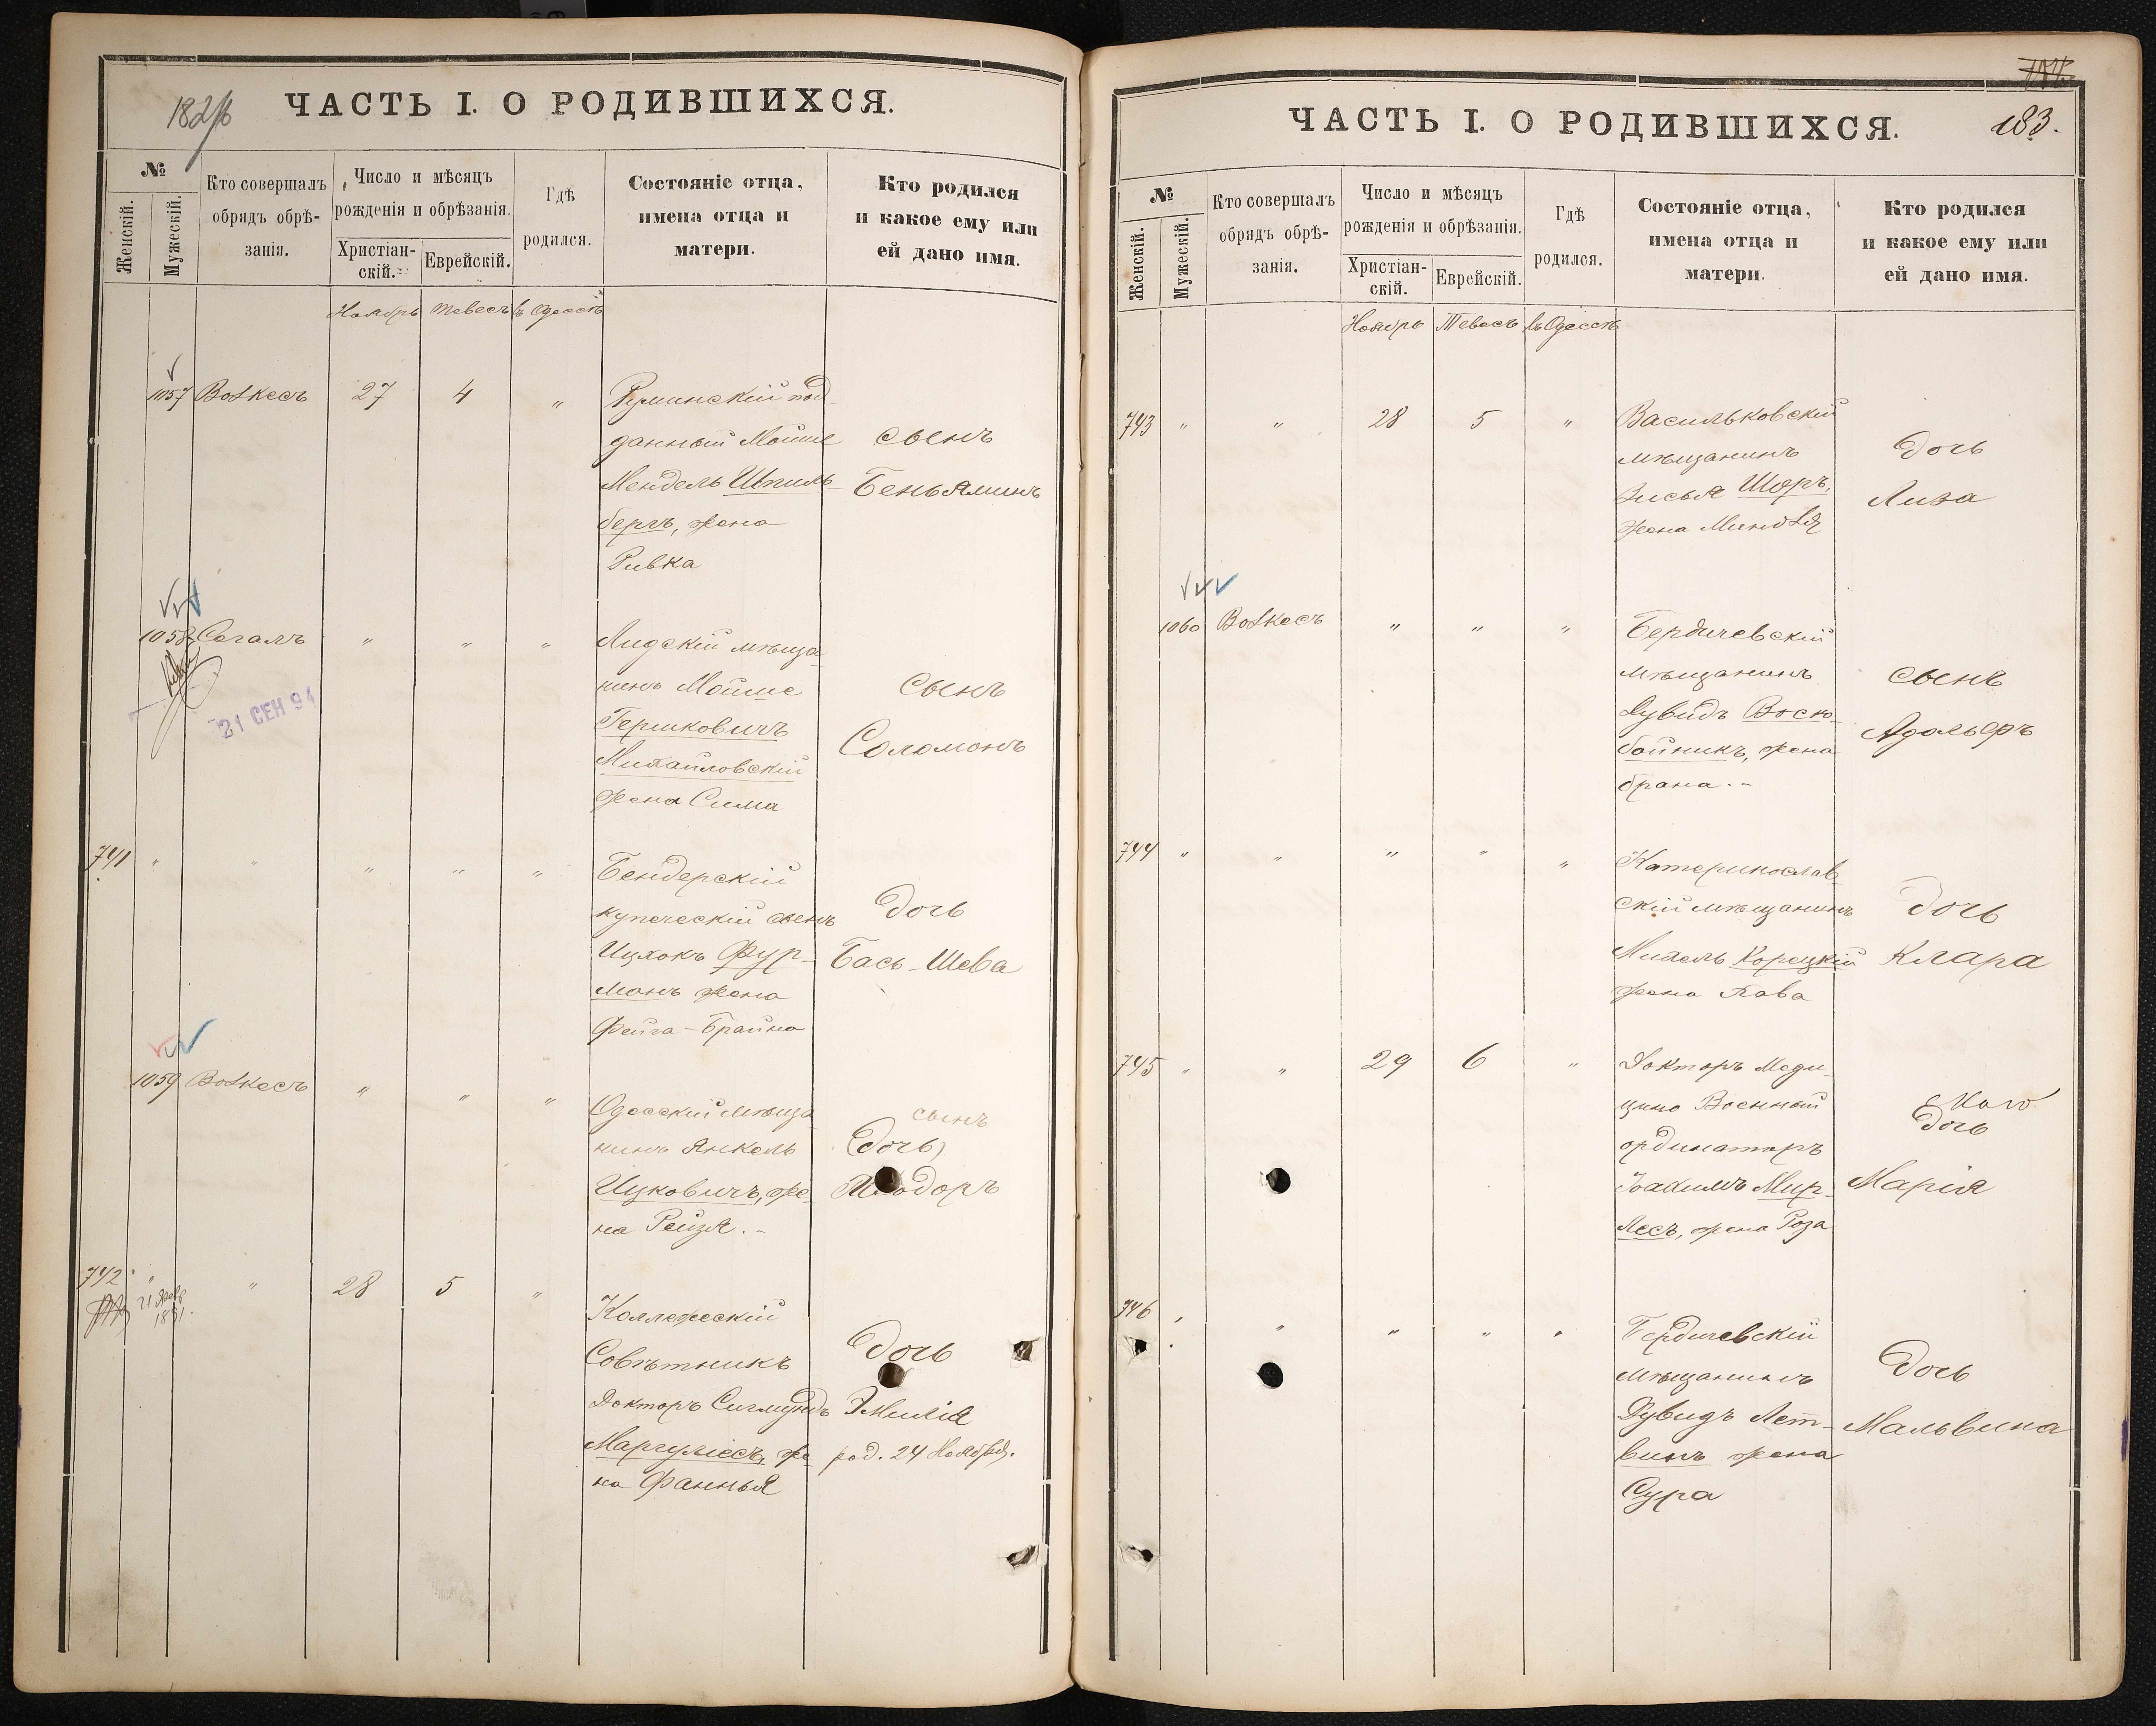 182/б
ЧАСТЬ I. О РОДИВШИХСЯ.
№
Женскій.
Мужескій.
Кто совершалъ
обрядъ обрѣ-
занія.
Число и мѣсяцъ
рожденія и обрѣзанія.
Христіан-
скій.
Еврейскій.
Гдѣ
родился.
Состояніе отца,
имена отца и
матери.
Кто родился
и какое ему или
ей дано имя.
Ноябрь Тевесъ въ Одессѣ
1057 Волкесъ 27 4 „ Румынскій под
данный Мойше
Мендель Шпиль
бергъ, жена
Ривка
сынъ
Беньяминъ
1058 Сегалъ „ „ „ Лидскій мѣща
нинъ Мойше
Гершковичъ
Михайловскій
жена Сима
сынъ
Соломонъ
21 СЕН 94
741 „ „ „ „ „ Бендерскій
купеческій сынъ
Ицхокъ Фур-
манъ жена
Фейга-Брайна
дочь
Бась-Шева
1059 Волкесъ „ „ „ Одесскій мѣща
нинъ Янкель
Ицковичъ, же-
на Рейзя.-
сынъ
(дочь)
742 „ „ 28 5 „ Коллежескій
Совѣтникъ
Докторъ Сигмундъ
Маргуліесъ, же
на Фаннья
дочь
Эмилія
род. 24 Ноября.
1891.
183.
ЧАСТЬ I. О РОДИВШИХСЯ.
№
Женскій.
Мужескій.
Кто совершалъ
обрядъ обрѣ-
занія.
Число и мѣсяцъ
рожденія и обрѣзанія.
Христіан-
скій.
Еврейскій.
Гдѣ
родился.
Состояніе отца,
имена отца и
матери.
Кто родился
и какое ему или
ей дано имя.
Ноябрь Тевесъ въ Одессѣ
743 „ „ 28 5 „ Васильковскій
мѣщанинъ
Зисья Шоръ,
жена Миндля
дочь
Лиза
1060 Волкесъ „ „ „ Бердичевскій
мѣщанинъ
Дувидъ Воско-
бойникъ, жена
брана.-
сынъ
Адольфъ
744 „ „ „ „ „ Катеринослав
скій мѣщанинъ
Михель Корецкій
жена Хава
дочь
Клара
745 „ „ 29 6 „ Докторъ Меди-
цины Военный
ординаторъ
Іоахимъ Мир-
лесъ, жена Роза
дочь
Марія
746 „ „ „ „ „ Бердичевскій
мѣщанинъ
Дувидъ Лет-
винъ жена
Сура
дочь
Мальвина